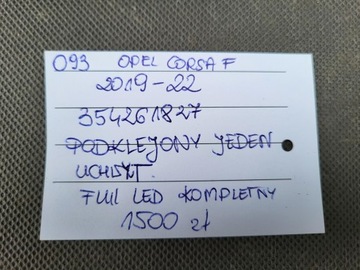 093 OPEL CORSA F
2019-22
354261827
PODKLEJONY JEDEN
UCHWYT.
FUll LED KOMPLETNY
1500 zł